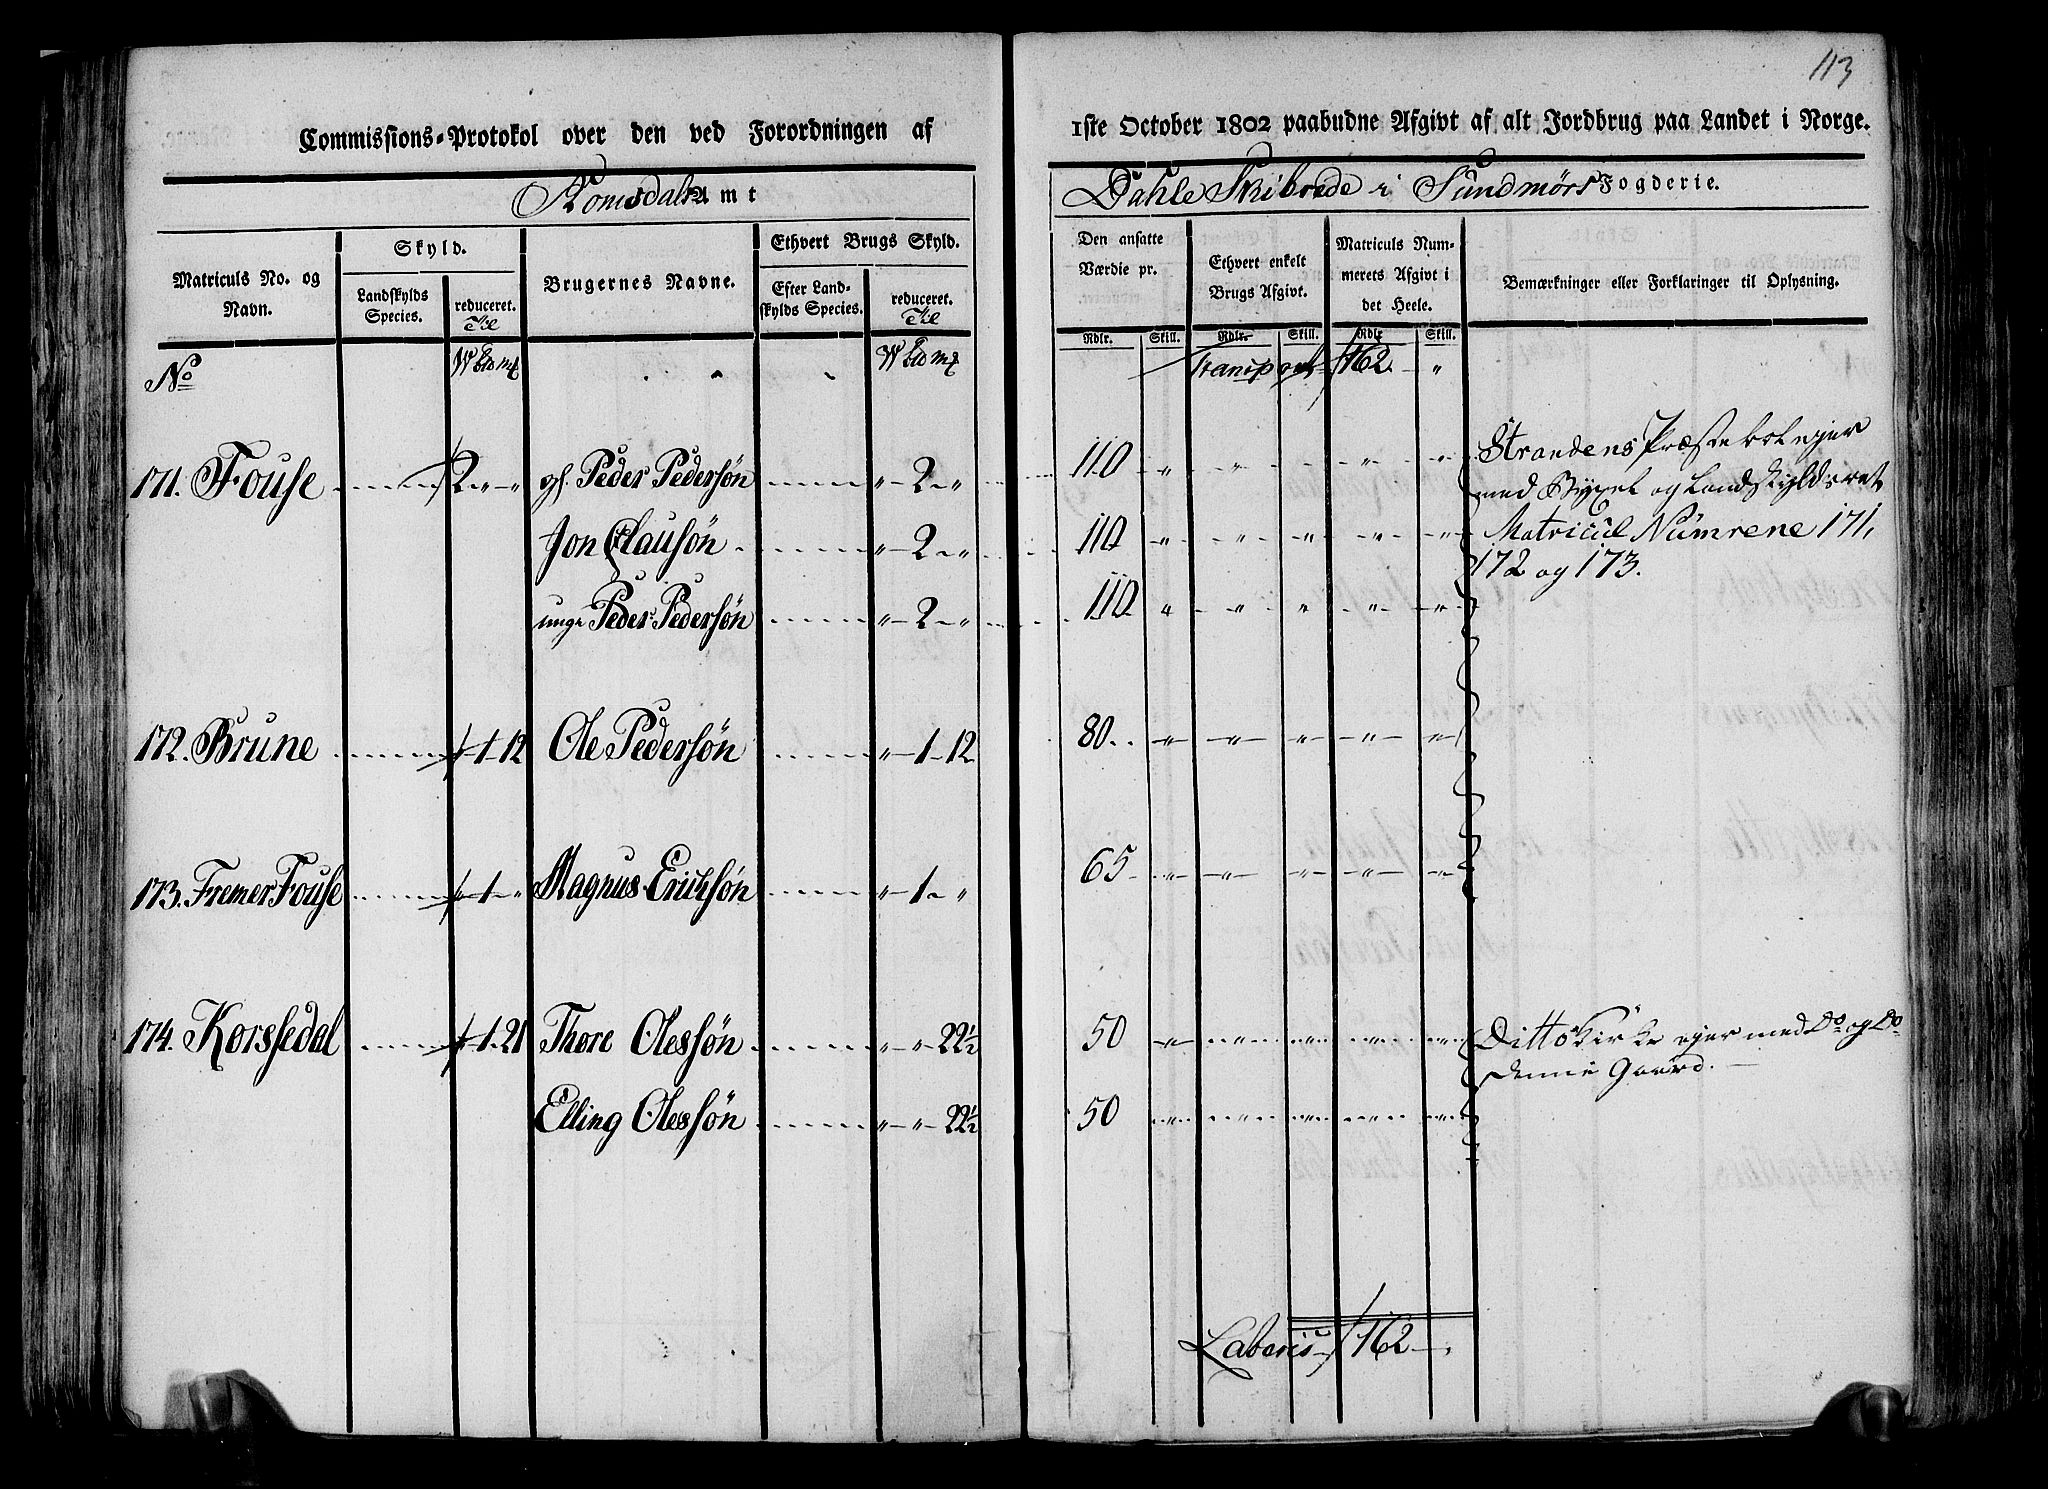 113
Commissions-Protokol over den ved Forordningen af 1ste October 1802 paabudne Afgivt af alt Jordbrug paa Landet i Norge.
Romsdals Amt
Dahle Skibrede i Sundmørs Fogderie.
Matriculs No. og Navn.
Skyld.
Landskylds Species.
reduceret.
Brugernes Navne.
Ethvert Brugs Skyld.
Efter Landskylds Species.
reduceret.
Den ansatte Værdie pr.
Rdlr. Skill.
Ethvert enkelt Brugs Afgivt.
Rdlr. Skill.
Matriculs Nummerets Afgivt i det Heele.
Rdlr. Skill.
Bemærkninger eller Forklaringer til Oplysning.
No
Transport 162. "
171. Fouse 2 " " gl. Peder Pedersøn " 2 " 110 " " " " "
Jon Clausøn " 2 " 110 " " " " "
unge Peder Pedersøn " 2 " 110 " " " " "
Strandens Præstebol ejer
med Bygsel og Landskyldsret
Matricul Numrene 171,
172 og 173.
172. Brune " 1 12 Ole Pedersøn " 1 12 80 " " " " "
173. Fremer Fouse " 1 " Magnus Erichsøn " 1 " 65 " " " " "
174. Korssedal " 1 21 Thore Olessøn " " 22½ 50 " " " " "
Elling Olessøn " " 22½ 50 " " " " "
Ditto Kirke ejer med Do og Do
denne Gaard.
Lateris 162